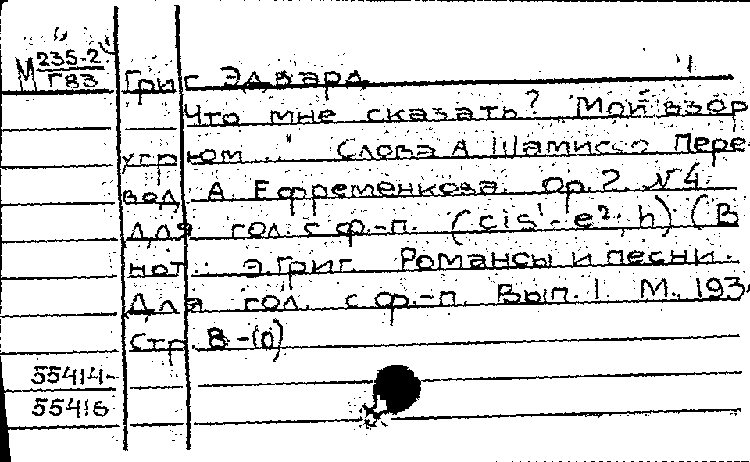 М 235-2
Г83
Григ Эдвард
Что мне сказать? "Мой взор
угрюм..." Слова А. Шамиссо Пере-
вод А. Ефременкова. Ор. 2. N 4.
Для гол. с ф.-п. (cis¹-e²; h) (В
нот.: Э. Григ. Романсы и песни.
Для гол. с ф.-п. Вып. I. М., 193
Стр. 8-10)
55414-
55416